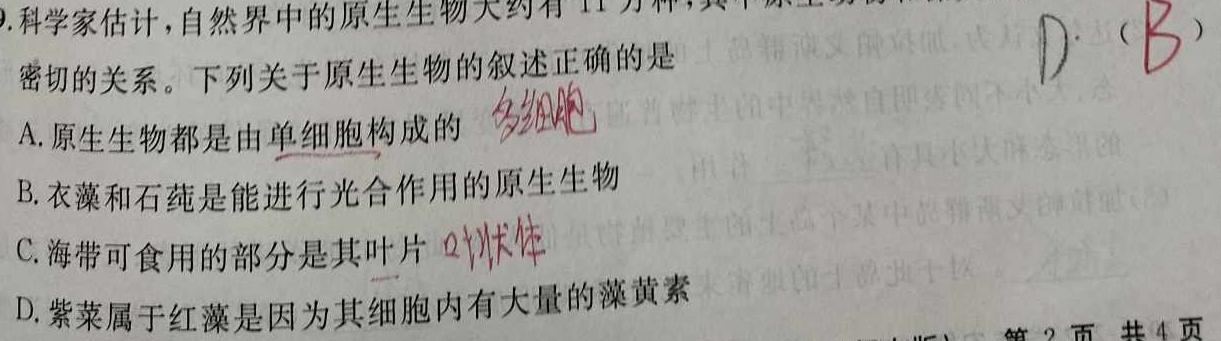 9.科学家估计,自然界中的原生生物大约有11万种,其中原生动物
D.(B)
密切的关系。下列关于原生生物的叙述正确的是
A.原生生物都是由单细胞构成的 多细胞
B.衣藻和石莼是能进行光合作用的原生生物
C.海带可食用的部分是其叶片 叶状体
D.紫菜属于红藻是因为其细胞内有大量的藻黄素
第2页 共4页